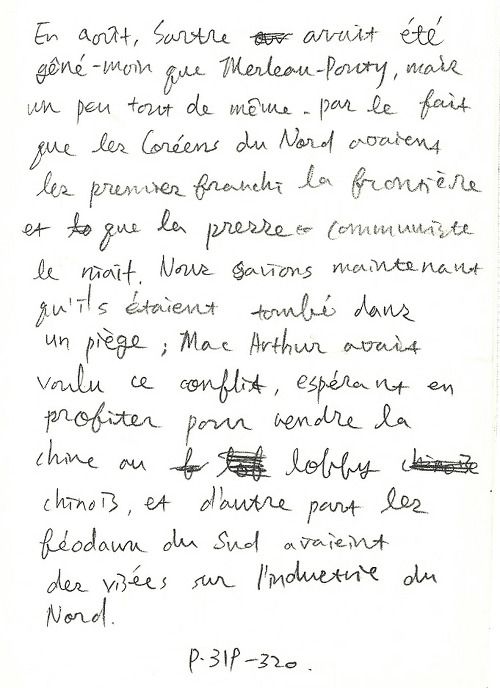 En août, Sartre avait été
gêné-moin que Merleau-Ponty, mais
un peu tout de même - par le fait
que les Coréens du Nord avaient
les premiers franchi la frontière
et que la presse communiste
le niait. Nous savions maintenant
qu'ils étaient tombé dans
un piège ; Mac Arthur avait
voulu ce conflit, espérant en
profiter pour vendre la
chine au lobby
chinois, et d'autre part les
féodaux du Sud avaient
des visées sur l'industrie du
Nord.
P.319-320.